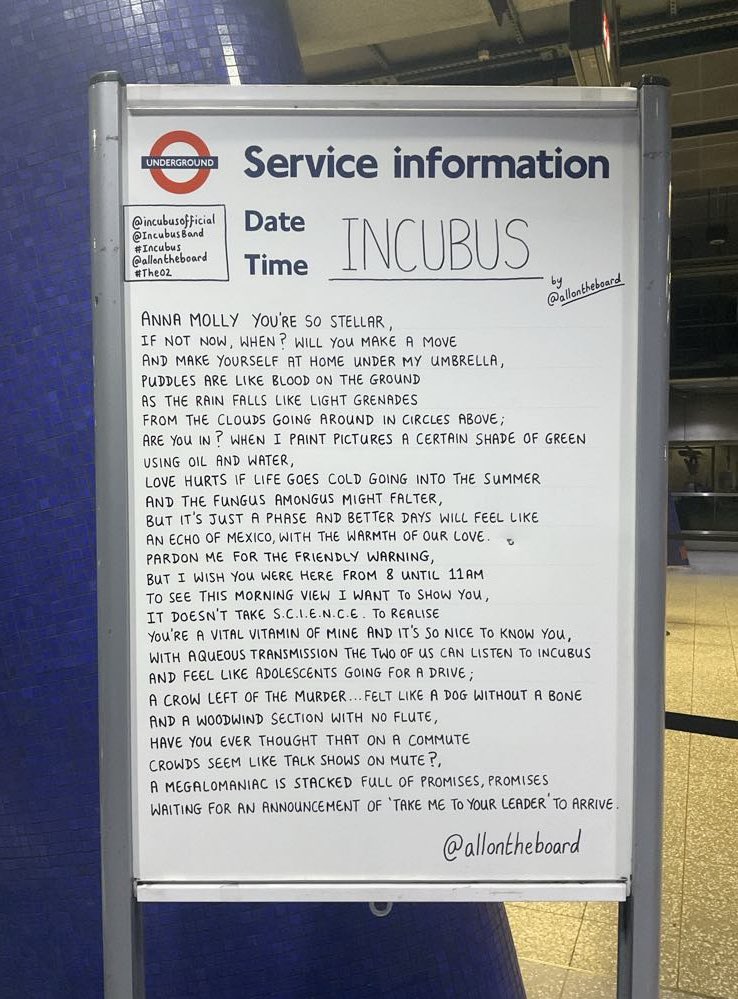 UNDERGROUND
Service information
@incubusofficial
@IncubusBand
#Incubus
@allontheboard
#TheO2
Date
Time
INCUBUS
by
@allontheboard
ANNA MOLLY YOU'RE SO STELLAR,
IF NOT NOW, WHEN? WILL YOU MAKE A MOVE
AND MAKE YOURSELF AT HOME UNDER MY UMBRELLA,
PUDDLES ARE LIKE BLOOD ON THE GROUND
AS THE RAIN FALLS LIKE LIGHT GRENADES
FROM THE CLOUDS GOING AROUND IN CIRCLES ABOVE;
ARE YOU IN? WHEN I PAINT PICTURES A CERTAIN SHADE OF GREEN
USING OIL AND WATER,
LOVE HURTS IF LIFE GOES COLD GOING INTO THE SUMMER
AND THE FUNGUS AMONGUS MIGHT FALTER,
BUT IT'S JUST A PHASE AND BETTER DAYS WILL FEEL LIKE
AN ECHO OF MEXICO, WITH THE WARMTH OF OUR LOVE.
PARDON ME FOR THE FRIENDLY WARNING,
BUT I WISH YOU WERE HERE FROM 8 UNTIL 11AM
TO SEE THIS MORNING VIEW I WANT TO SHOW YOU,
IT DOESN'T TAKE S.C.I.E.N.C.E. TO REALISE
YOU'RE A VITAL VITAMIN OF MINE AND IT'S SO NICE TO KNOW YOU,
WITH AQUEOUS TRANSMISSION THE TWO OF US CAN LISTEN TO INCUBUS
AND FEEL LIKE ADOLESCENTS GOING FOR A DRIVE;
A CROW LEFT OF THE MURDER...FELT LIKE A DOG WITHOUT A BONE
AND A WOODWIND SECTION WITH NO FLUTE,
HAVE YOU EVER THOUGHT THAT ON A COMMUTE
CROWDS SEEM LIKE TALK SHOWS ON MUTE?,
A MEGALOMANIAC IS STACKED FULL OF PROMISES, PROMISES
WAITING FOR AN ANNOUNCEMENT OF 'TAKE ME TO YOUR LEADER' TO ARRIVE.
@allontheboard